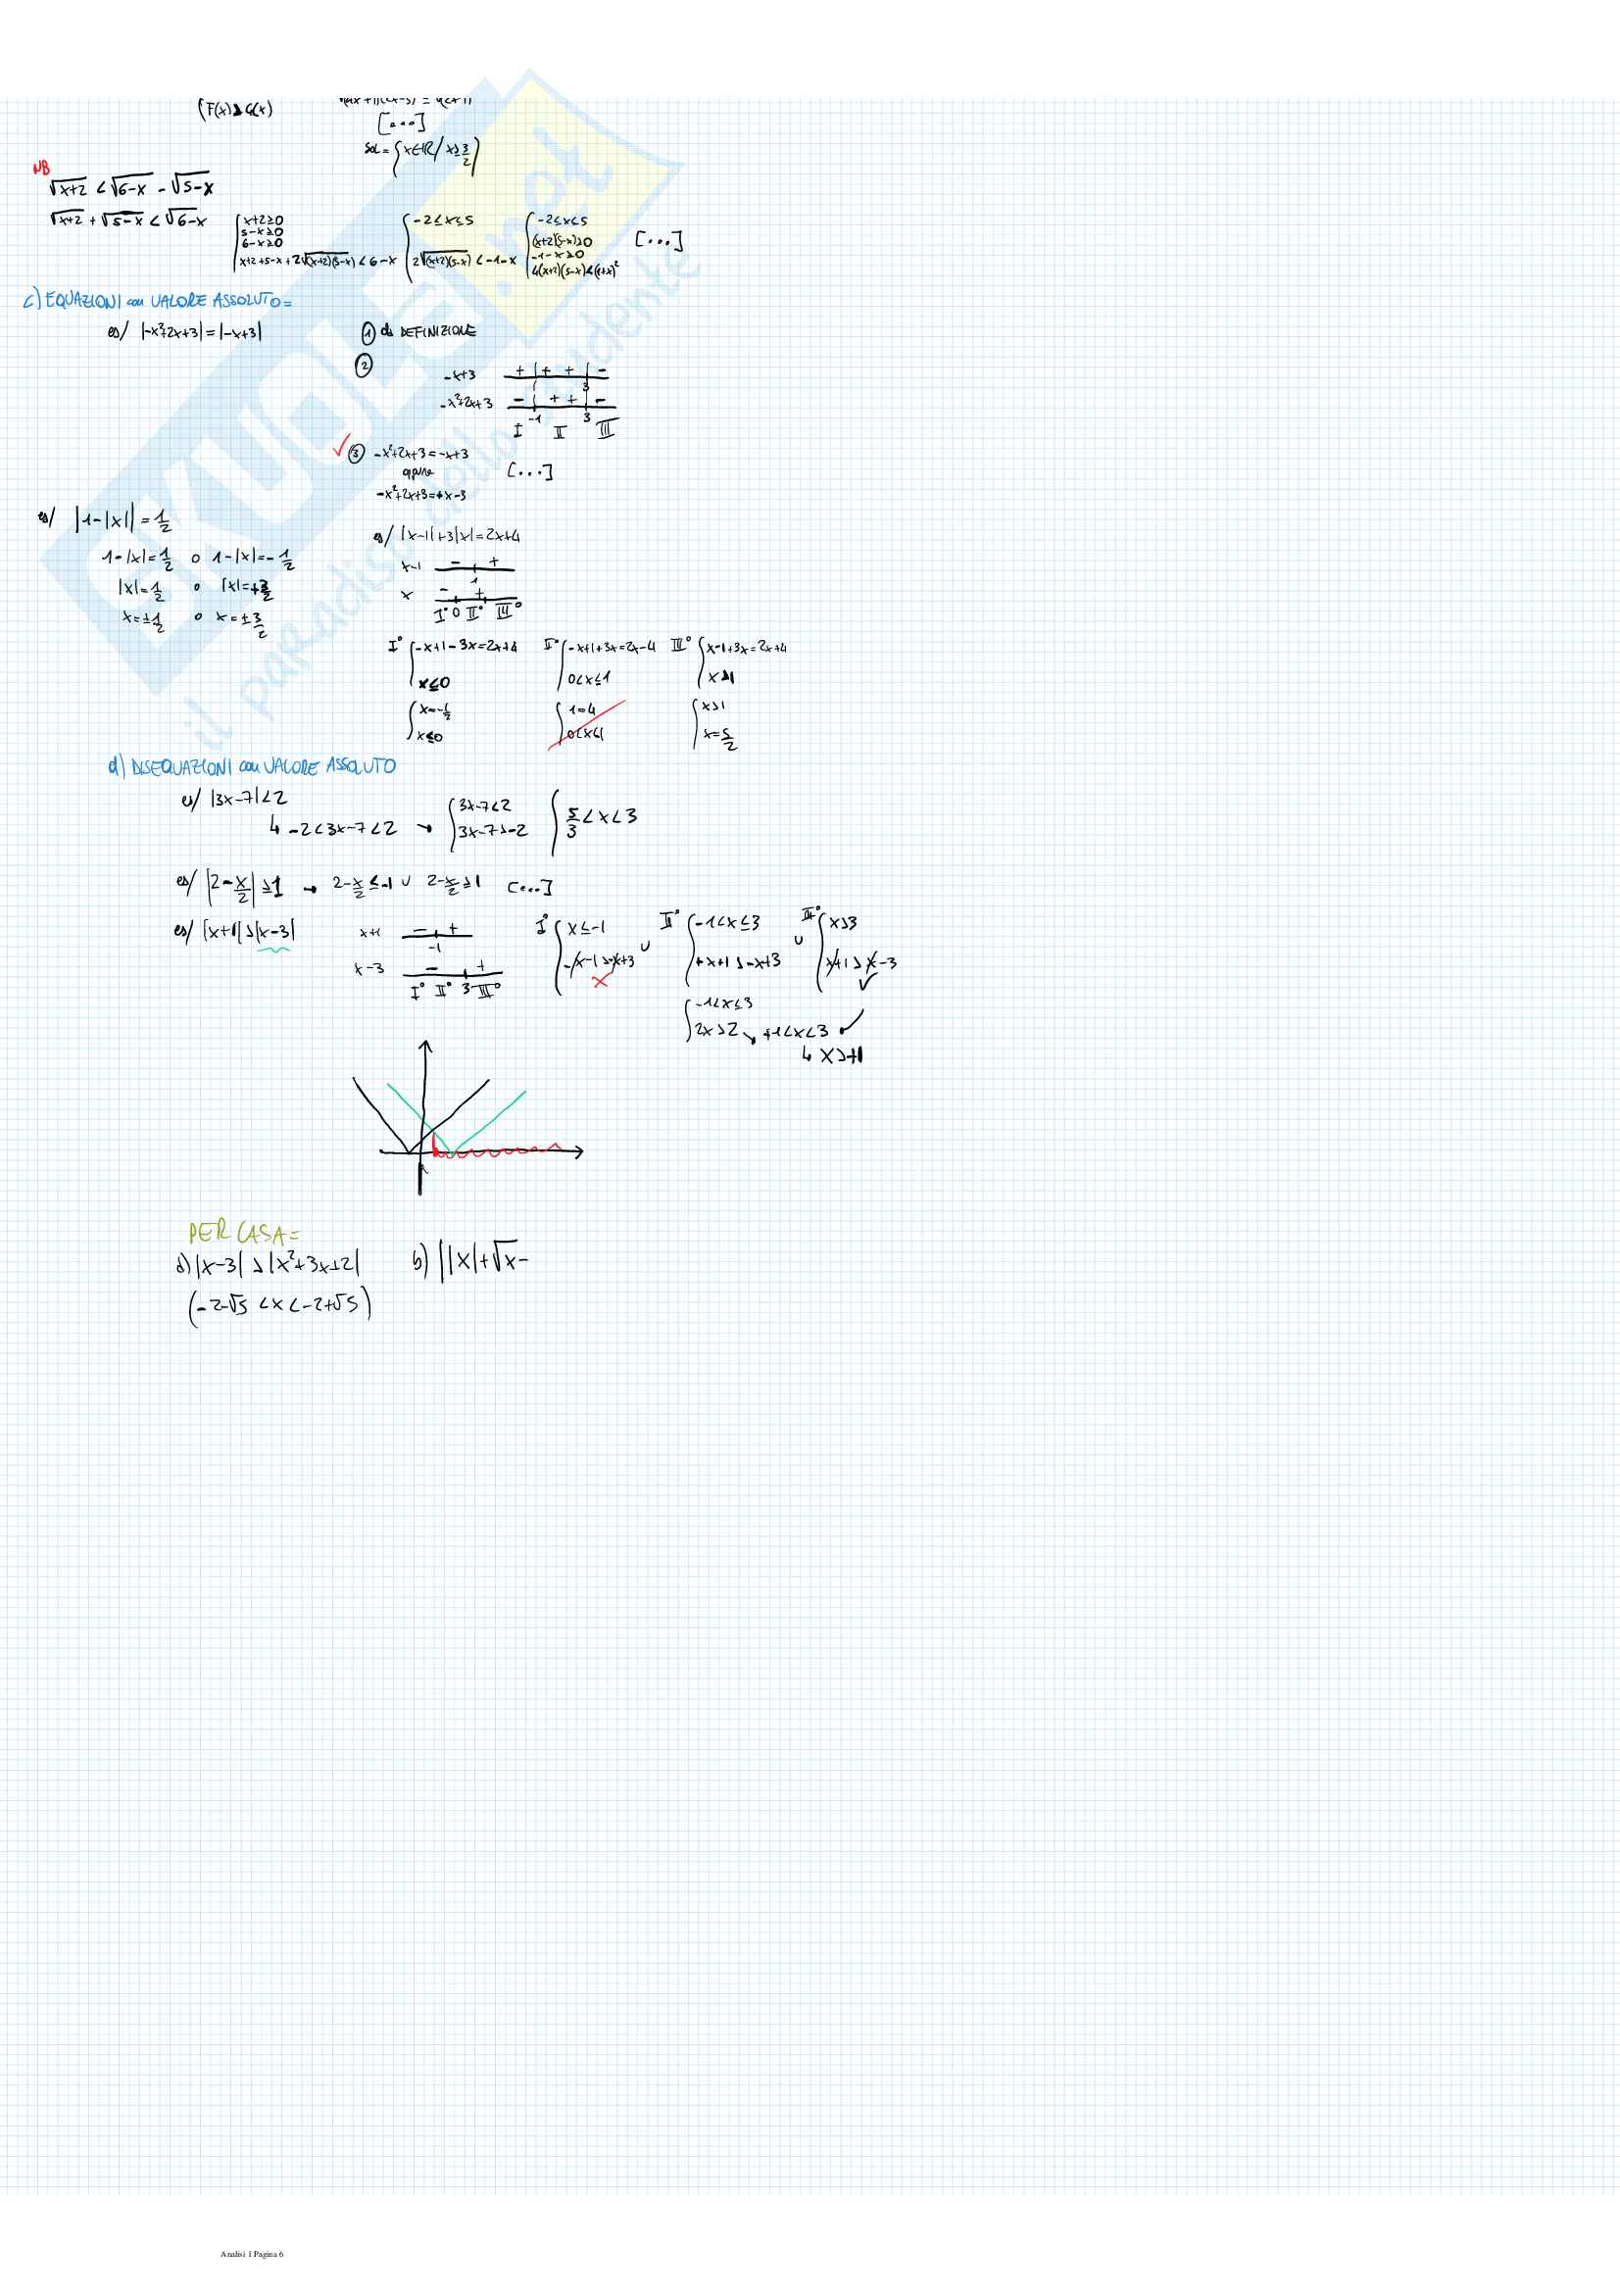 F(x)≥G(x)
[...]
Sol = {x∈ℝ / x≥3/2}
NB
√x+2 < √6-x - √5-x
√x+2 + √5-x < √6-x
{x+2≥0
5-x≥0
6-x≥0
x+2+5-x+2√(x+2)(5-x) < 6-x
{-2≤x≤5
2√(x+2)(5-x) < -1-x
{-2≤x≤5
(x+2)(5-x)≥0
-1-x≥0
4(x+2)(5-x)<(1+x)²
[...]
c) EQUAZIONI con VALORE ASSOLUTO=
es/ |-x²+2x+3|=|-x+3|
① da DEFINIZIONE
②
-x+3 + + + -
3
-x²+2x+3 - + + -
-1 3
I II III
③ -x²+2x+3=-x+3
oppure
-x²+2x+3=+x-3
[...]
es/ |1-|x||=1/2
1-|x|=1/2 o 1-|x|=-1/2
|x|=1/2 o |x|=+3/2
x=±1/2 o x=±3/2
es/ |x-1|+3|x|=2x+4
x-1 - +
1
x - +
I° 0 II° III°
I° {-x+1-3x=2x+4
x≤0
II° {-x+1+3x=2x-4
0<x≤1
III° {x-1+3x=2x+4
x>1
{x=-1/2
x≤0
{1=4
0<x≤1
{x>1
x=5/2
d) DISEQUAZIONI con VALORE ASSOLUTO
es/ |3x-7|<2
↳ -2<3x-7<2 → {3x-7<2
3x-7>-2
{5/3<x<3
es/ |2-x/2|≥1 → 2-x/2≤-1 ∪ 2-x/2≥1 [...]
es/ |x+1|>|x-3|
x+1 - +
-1
x-3 - +
I° II° 3 III°
I° {x≤-1
-x-1>-x+3
∪
II° {-1<x≤3
+x+1>-x+3
∪
III° {x>3
x+1>x-3
{-1<x≤3
2x>2 ↘ +1<x<3
↳ x>+1
PER CASA=
a) |x-3|>|x²+3x+2|
(-2-√5 <x<-2+√5)
b) ||x|+√x-
SKUOLA.net
il paradiso dello studente
Analisi 1 Pagina 6